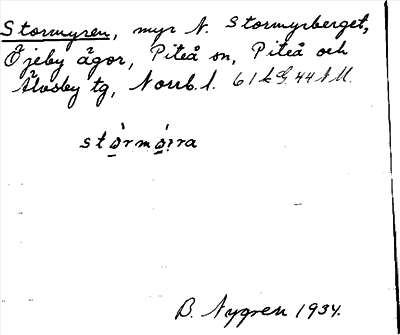 Stormyren, myr N. Stormyrberget,
Öjeby ägor, Piteå sn, Piteå och
Älvsby tg, Norrb. l. 61 k G. 44 N M.
stò̱rmò̱i̭ra
B. Nygren 1934.